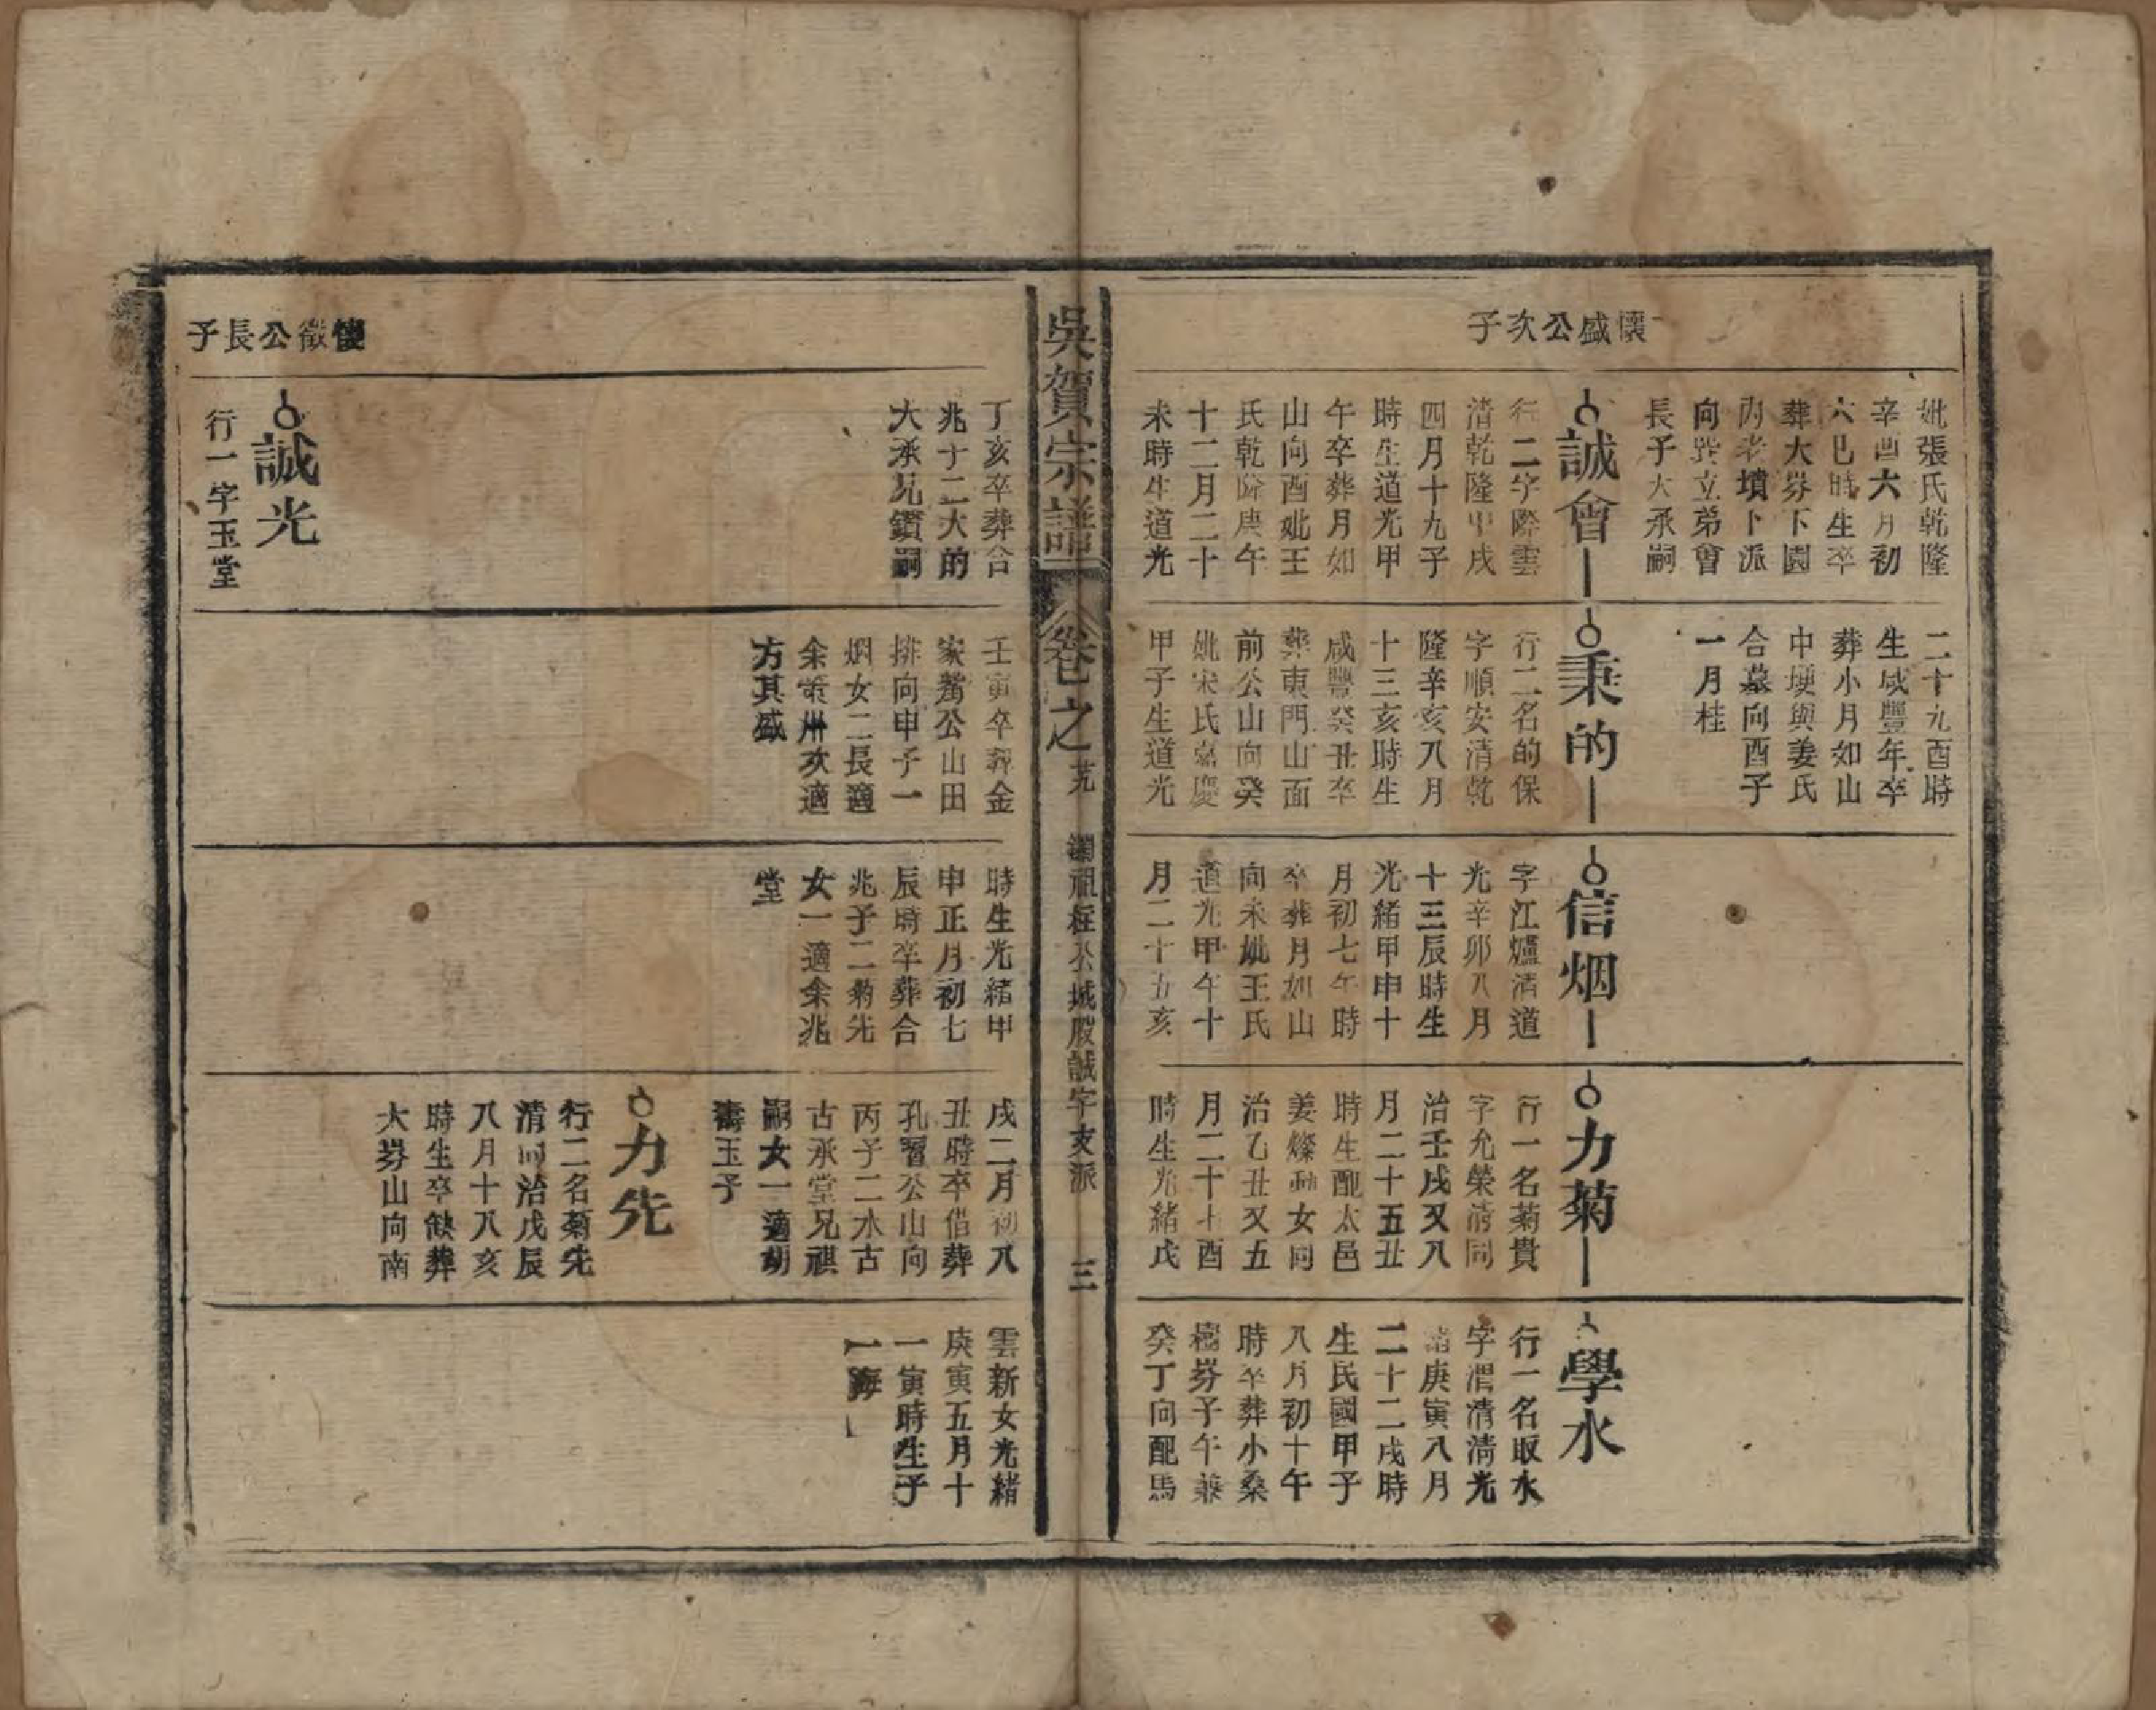 懷盛公次子
妣張氏乾隆
辛酉六月初
六巳時生卒
葬大塝下園
內老墳卜派
向巽立弟會
長子大承嗣
誠會
行二字際雲
清乾隆甲戌
四月十九子
時生道光甲
午卒葬月如
山向酉妣王
氏乾隆庚午
十二月二十
未時生道光
二十九酉時
生咸豐年卒
葬小月如山
中塝與姜氏
合墓向酉子
一月桂
秉的
行二名的保
字順安清乾
隆辛亥八月
十三亥時生
咸豐癸丑卒
葬東門山面
前公山向癸
妣宋氏嘉慶
甲子生道光
信烟
字江爐清道
光辛卯八月
十三辰時生
光緒甲申十
月初七午時
卒葬月如山
向未妣王氏
道光甲午十
月二十五亥
力菊
行一名菊貴
字允榮清同
治壬戌又八
月二十五丑
時生配太邑
姜燦女同
治乙丑又五
月二十七酉
時生光緒戊
學水
行一名取水
字渭清清光
緒庚寅八月
二十二戌時
生民國甲子
八月初十午
時卒葬小桑
樹塝子午兼
癸丁向配馬
吳賀宗譜
卷之
瀾祖柱公城股誠字支派
三
丁亥卒葬合
兆十二大的
大承兄鑽嗣
壬寅卒葬金
家觜公山田
排向申子一
烟女二長適
余策州次適
方其盛
時生光緒甲
申正月初七
辰時卒葬合
兆子二菊先
女一適余兆
堂
戌二月初八
丑時卒借葬
孔習公山向
丙子二水古
古承堂兄祺
嗣女一適胡
壽玉子
力先
行二名菊先
清同治戊辰
八月十八亥
時生卒缺葬
大塝山向南
雲新女光緒
庚寅五月十
一寅時生子
一海
懷徵公長子
誠光
行一字玉堂